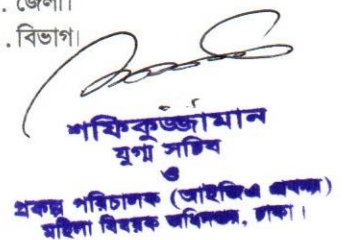 . জেলা।
. বিভাগ।
শফিকুজ্জামান
যুগ্ম সচিব
ও
প্রকল্প পরিচালক (আইজিএ প্রকল্প)
মহিলা বিষয়ক অধিদপ্তর, ঢাকা।